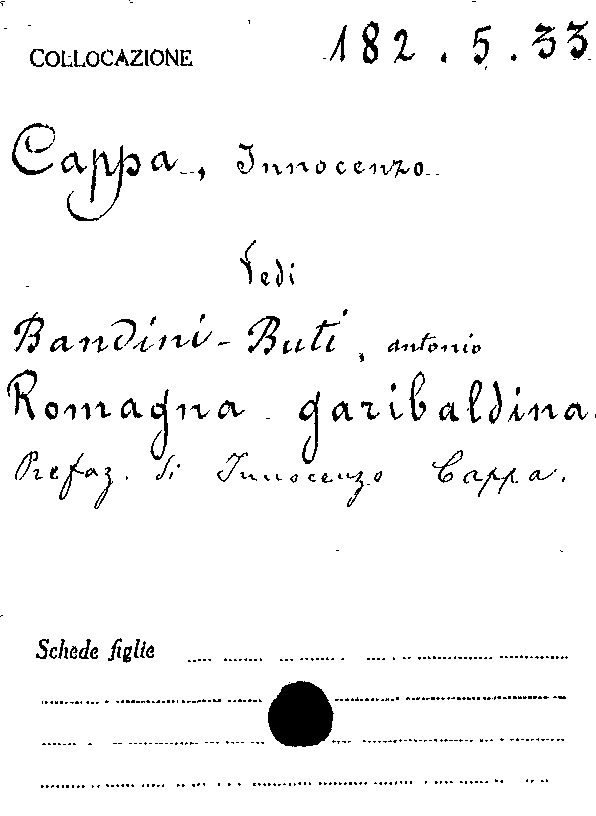 COLLOCAZIONE 182.5.33
Cappa, Innocenzo
Vedi
Bandini-Buti, antonio
Romagna garibaldina.
Prefaz. di Innocenzo Cappa.
Schede figlie